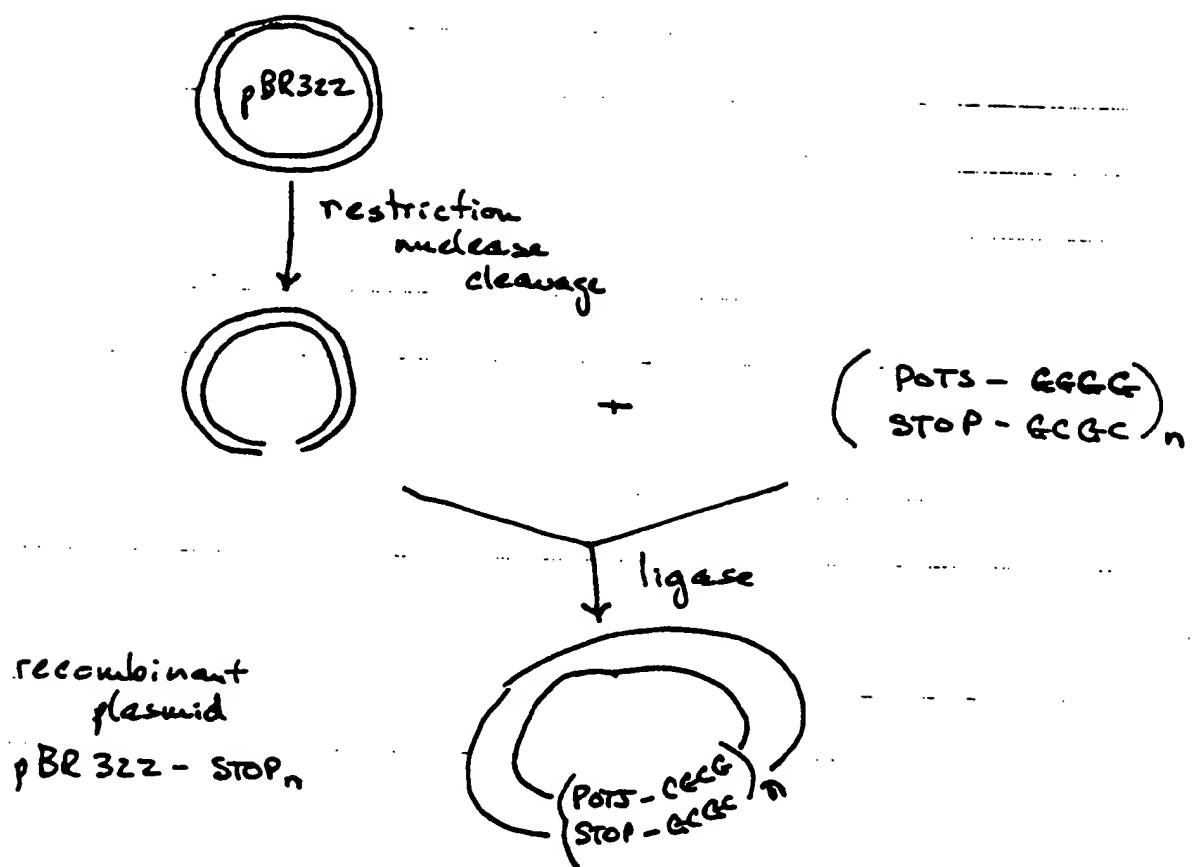 pBR322
restriction
nuclease
cleavage
+
( POTS - GGGG )n
( STOP - GCGC )n
ligase
recombinant
plasmid
pBR322 - STOPn
( POTS - CGCG )n
( STOP - GCGC )n